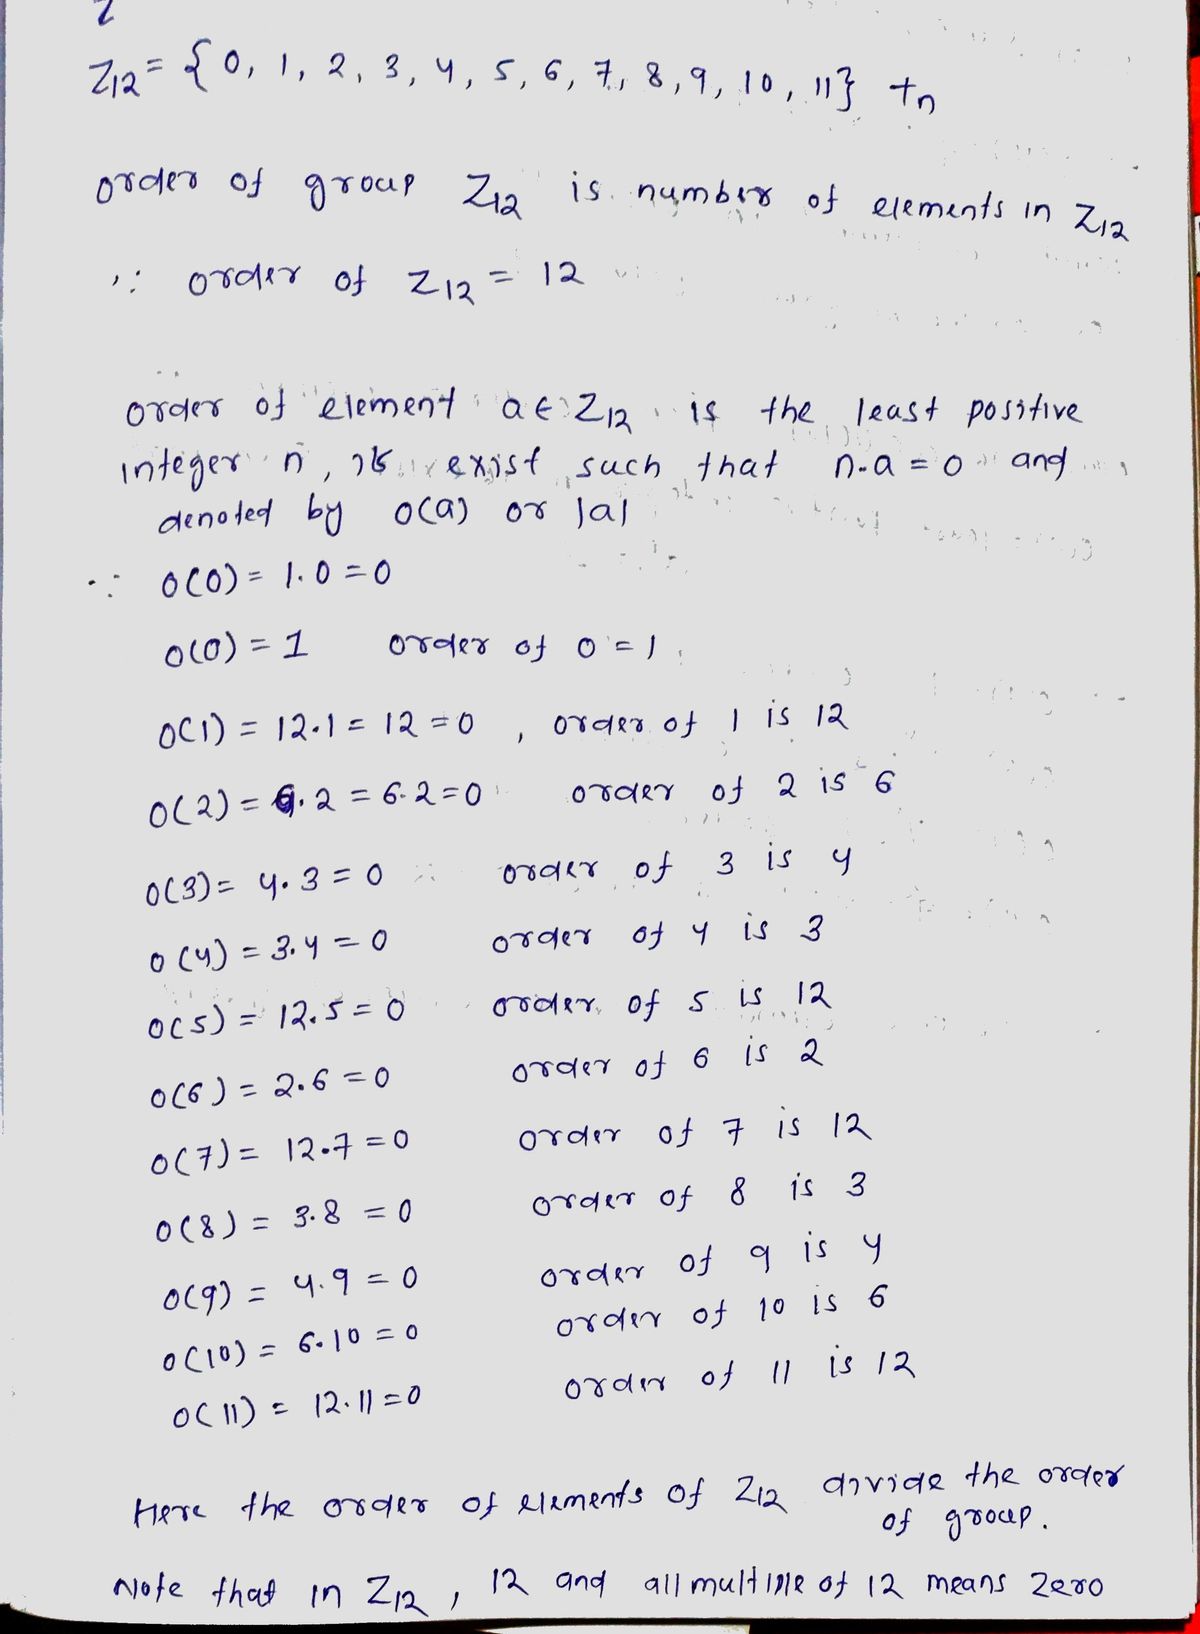 2
Z12 = { 0, 1, 2, 3, 4, 5, 6, 7, 8, 9, 10, 11} +n
order of group Z12 is number of elements in Z12
∵ order of Z12 = 12
order of element a ∈ Z12 is the least positive
integer n, if exist such that n.a = 0 and
denoted by o(a) or |a|
∵ o(0) = 1.0 = 0
o(0) = 1 order of 0 = 1
o(1) = 12.1 = 12 = 0 , order of 1 is 12
o(2) = 6.2 = 6.2 = 0 order of 2 is 6
o(3) = 4.3 = 0 order of 3 is 4
o(4) = 3.4 = 0 order of 4 is 3
o(5) = 12.5 = 0 order of 5 is 12
o(6) = 2.6 = 0 order of 6 is 2
o(7) = 12.7 = 0 order of 7 is 12
o(8) = 3.8 = 0 order of 8 is 3
o(9) = 4.9 = 0 order of 9 is 4
o(10) = 6.10 = 0 order of 10 is 6
o(11) = 12.11 = 0 order of 11 is 12
Here the order of elements of Z12 divide the order
of group.
Note that in Z12 , 12 and all multiple of 12 means zero